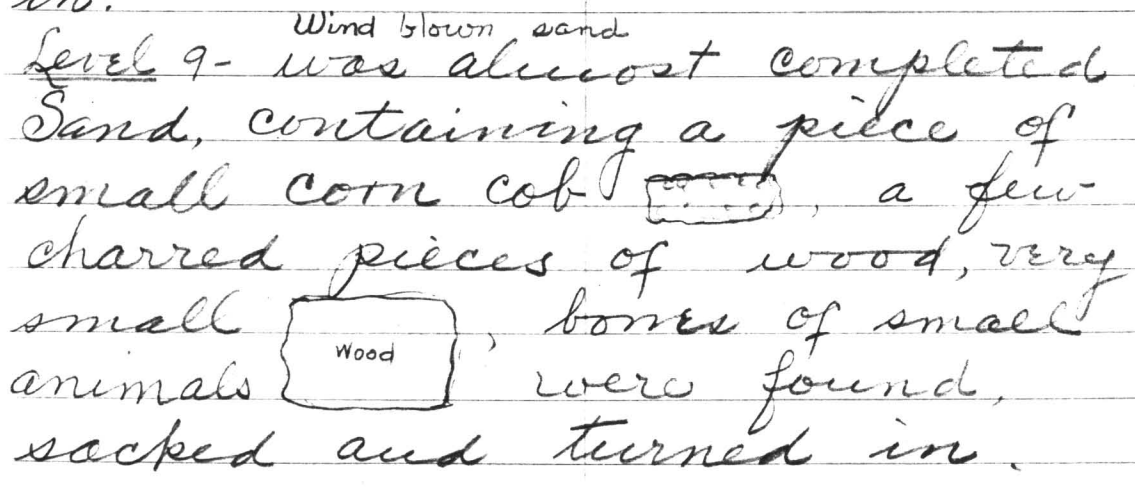 in.
Wind blown sand
Level 9- was almost completed
Sand, containing a piece of
small corn cob , a few
charred pieces of wood, very
small , bones of small
Wood
animals were found,
sacked and turned in.